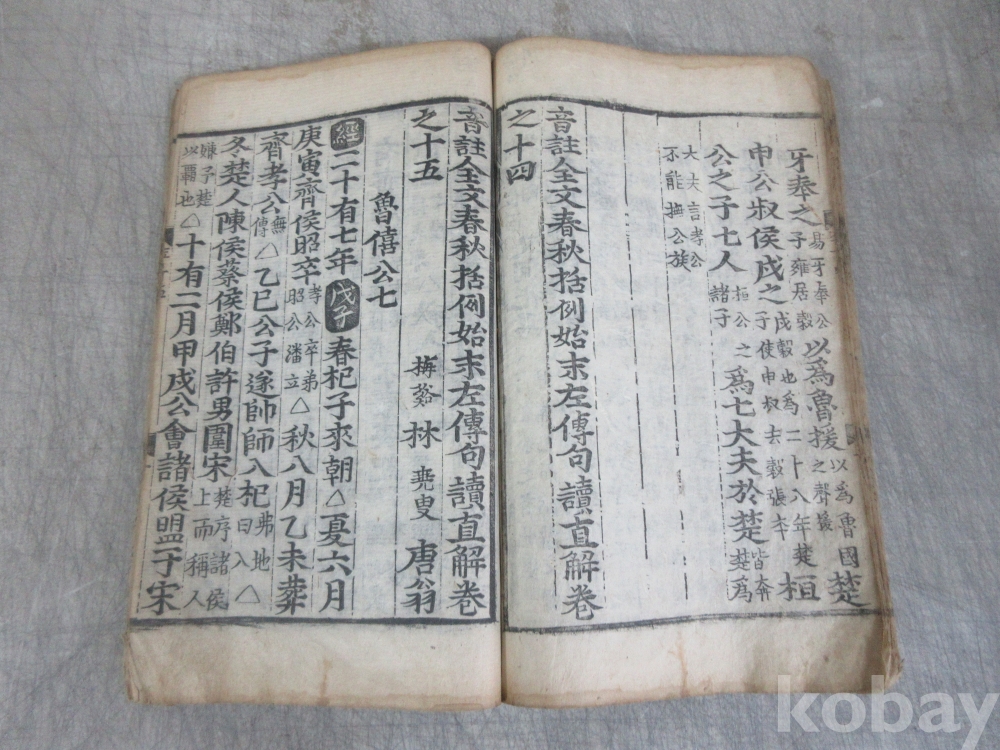 牙奉之易牙奉公子雍居穀以為魯援以為魯國之聲援楚
申公叔侯戍之戍穀也為二十八年楚子使申叔去穀張本桓
公之子七人桓公之諸子為七大夫於楚皆奔楚為
大夫言孝公不能撫公族
音註全文春秋括例始末左傳句讀直解卷
之十四
音註全文春秋括例始末左傳句讀直解卷
之十五 梅谿 林 堯叟 唐翁
魯僖公七
經二十有七年戊子春杞子來朝△夏六月
庚寅齊侯昭卒孝公卒弟昭公潘立△秋八月乙未葬
齊孝公無傳△乙巳公子遂帥師入杞弗地曰入△
冬楚人陳侯蔡侯鄭伯許男圍宋楚序諸侯上而稱人
嫌子楚以霸也△十有二月甲戌公會諸侯盟于宋
kobay